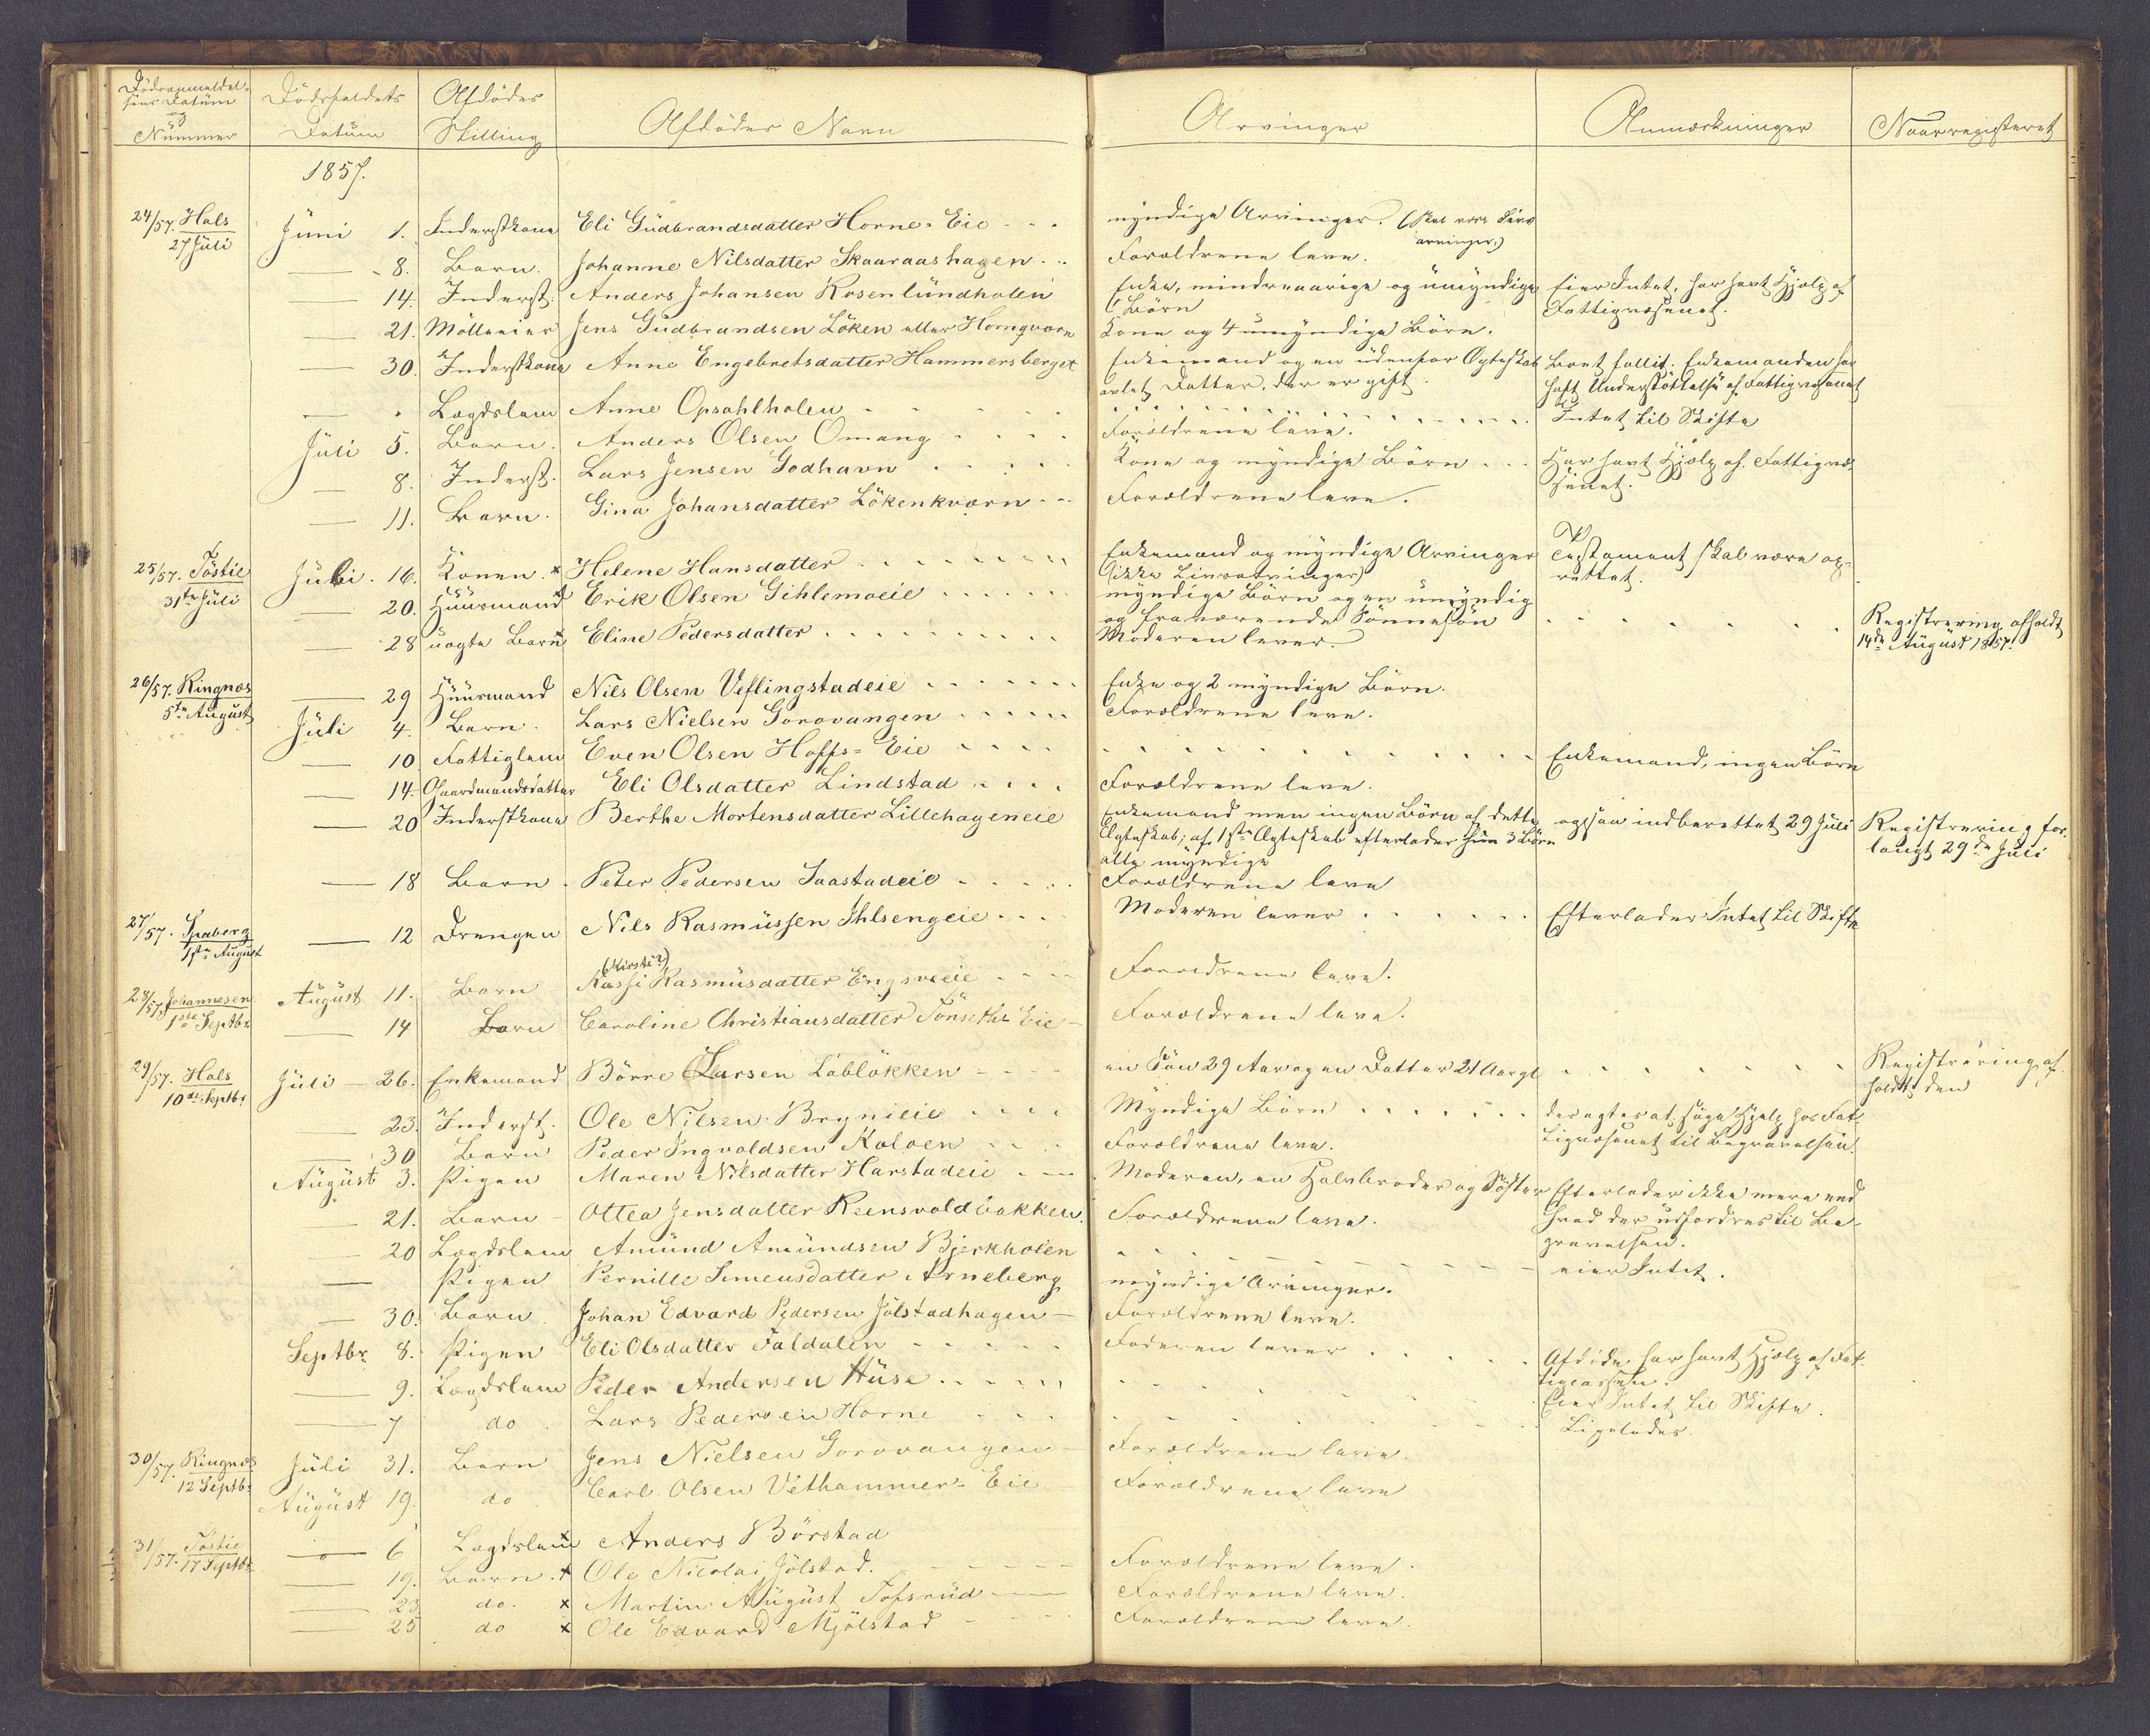 Dödsanmeldel-
sens Datum
og
Nummer
Dödsfaldets
Datum
Afdödes
Stilling
Afdödes Navn
Arvinger
Anmærkninger
Naar registeret
1857.
24/57. Hals
27 Juli
Juni 1. Inderstkone Eli Gudbrandsdatter Horne-Eie - - - myndige Arvinger. (skal være Livs
arvinger.)
— 8. Barn. Johanne Nilsdatter Skaaraashagen . . . Forældrene leve.
— 14. Inderst. Anders Johansen Rosenlundholen Enke, mindreaarige og umyndige Eier Intet, har havt Hjelp af
Börn Fattigvæsenet.
— 21. Mölleeier Jens Gudbrandsen Löken eller Hornqværn Kone og 4 umyndige Börn.
— 30. Inderstkone Anne Engebretsdatter Hammersberget Enkemand og en udenfor Ægteskab Boet fallit. Enkemanden har
avlet Datter, der er gift. haft Understöttelse af Fattigvæsenet
— " Lægdslem Anne Opsahlholen - - - - Intet til Skifte
Juli 5. Barn. Anders Olsen Omang - - - - Forældrene leve.
— 8. Inderst. Lars Jensen Godhavn . . . . Kone og myndige Börn . . . Har havt Hjælp af Fattigvæ-
senet.
— 11. Barn. Gina Johansdatter Lökenkværn - - - Forældrene leve.
25/57. Töstie
31te Juli
Juli. 16. Konen. x Helene Hansdatter . . . . . . . Enkemand og myndige Arvinger Testament skal være op-
(ikke Livsarvinger) rettet.
— 20. Huusmand Erik Olsen Gihlemoeie . . . . . . myndige Börn og en umyndig
og fraværende Sönnesön . . . . . . . Registrering afholdt
14de August 1857.
— 28 uægte Barn Eline Pedersdatter . . . . . . . . . Moderen lever.
26/57. Ringnæs
5te August
— 29 Huusmand Nils Olsen Veflingstadeie . . . . . . . Enke og 2 myndige Börn.
Juli 4. Barn. Lars Nielsen Gorovangen . . . . . Forældrene leve.
— 10 Fattiglem Even Olsen Hoffs-Eie . . . . Enkemand, ingen Börn
— 14. Gaardmandsdatter Eli Olsdatter Lindstad . . . . Forældrene leve.
— 20 Inderstkone Berthe Mortensdatter Lillehageneie Enkemand men ingen Börn af dette ogsaa indberettet 29 Juli Registrering for-
Ægteskab; af 1ste Ægteskab efterlader hun 3 Börn langt 29de Juli
alle myndige
— 18 Barn. Peter Pedersen Saastadeie - . . . . Forældrene leve
27/57. Spaberg
1ste August
— 12 Drengen Nils Rasmussen Ihlsengeie . . . . Moderen lever . . . . . . Efterlader Intet til Skifte
(Kirsti?)
28/57. Johannesen
1ste Septbr.
August 11. Barn Kassi Rasmusdatter Engsveeie - - - - Forældrene leve.
— 14 Barn Caroline Christiansdatter Tönseths Eie — Forældrene leve.
29/57. Hals
10de Septbr
Juli — 26. Enkemand Börre Larsen Lablökken - - - - en Sön 29 Aar og en Datter 21 Aar gl . . . . . . . Registrering af-
holdt den
— 23. Inderst. Ole Nilsen Brynieie . . . . Myndige Börn . . . . . . . der agtes at söge Hjelp hos Fat-
tigvæsenet til Begravelsen.
— 30 Barn Peder Ingvoldsen Koloen - - - Forældrene leve.
August 3. Pigen Maren Nilsdatter Harstadeie - — Moderen, en Halvbroder og Söster Efterlader ikke mere end
hvad der udfordres til Be-
gravelsen.
— 21. Barn - Ottea Jensdatter Reensvoldbakken. Forældrene leve.
— 20 Lægdslem Amund Amundsen Bjerkholen - - - - - - - - - eier Intet.
— Pigen Pernille Simensdatter Arneberg myndige Arvinger.
— 30. Barn. Johan Edvard Pedersen Jölstadhagen — Forældrene leve.
Septbr. 8. Pigen Eli Olsdatter Faldalen - - - - - Faderen lever . . . . . Afdöde har havt Hjælp af Fat-
tigcassen.
— 9. Lægdslem Peder Andersen Huse . . . . . . Eier Intet til Skifte.
— 7 do Lars Pedersen Horne . . . . Ligeledes.
30/57. Ringnæs
12 Septbr
Juli 31. Barn Jens Nielsen Gorovangen — Forældrene leve.
August 19. do Carl Olsen Vethammer-Eie Forældrene leve
31/57. Töstie
17 Septbr
— 6 Lægdslem x Anders Börstad
— 19. Barn. x Ole Nicolai Jölstad. - - - - Forældrene leve.
— 23 do. x Martin August Tofsrud — Forældrene leve.
— 25 do x Ole Edvard Mjölstad - - - - Forældrene leve.